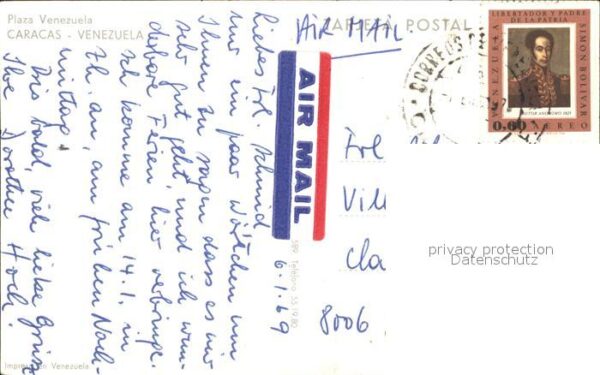 Plaza Venezuela
CARACAS - VENEZUELA
TARJETA POSTAL
AIR MAIL
Liebes Frl. Schmid
Nur ein paar Wörtchen um
Ihnen zu sagen dass es mir
sehr gut geht, und ich wun-
derbare Ferien hier verbringe.
Ich komme am 14.1. in
Zch. an, am frühen Nach-
mittag.
Bis bald, viele liebe Grüsse
Ihre Dorothee Hoch.
6.1.69
AIR MAIL
Frl
Vill
Cla
8006
CORREOS
LIBERTADOR Y PADRE
DE LA PATRIA
VENEZUELA
SIMON BOLIVAR
0.60
AEREO
privacy protection
Datenschutz
Venezuela